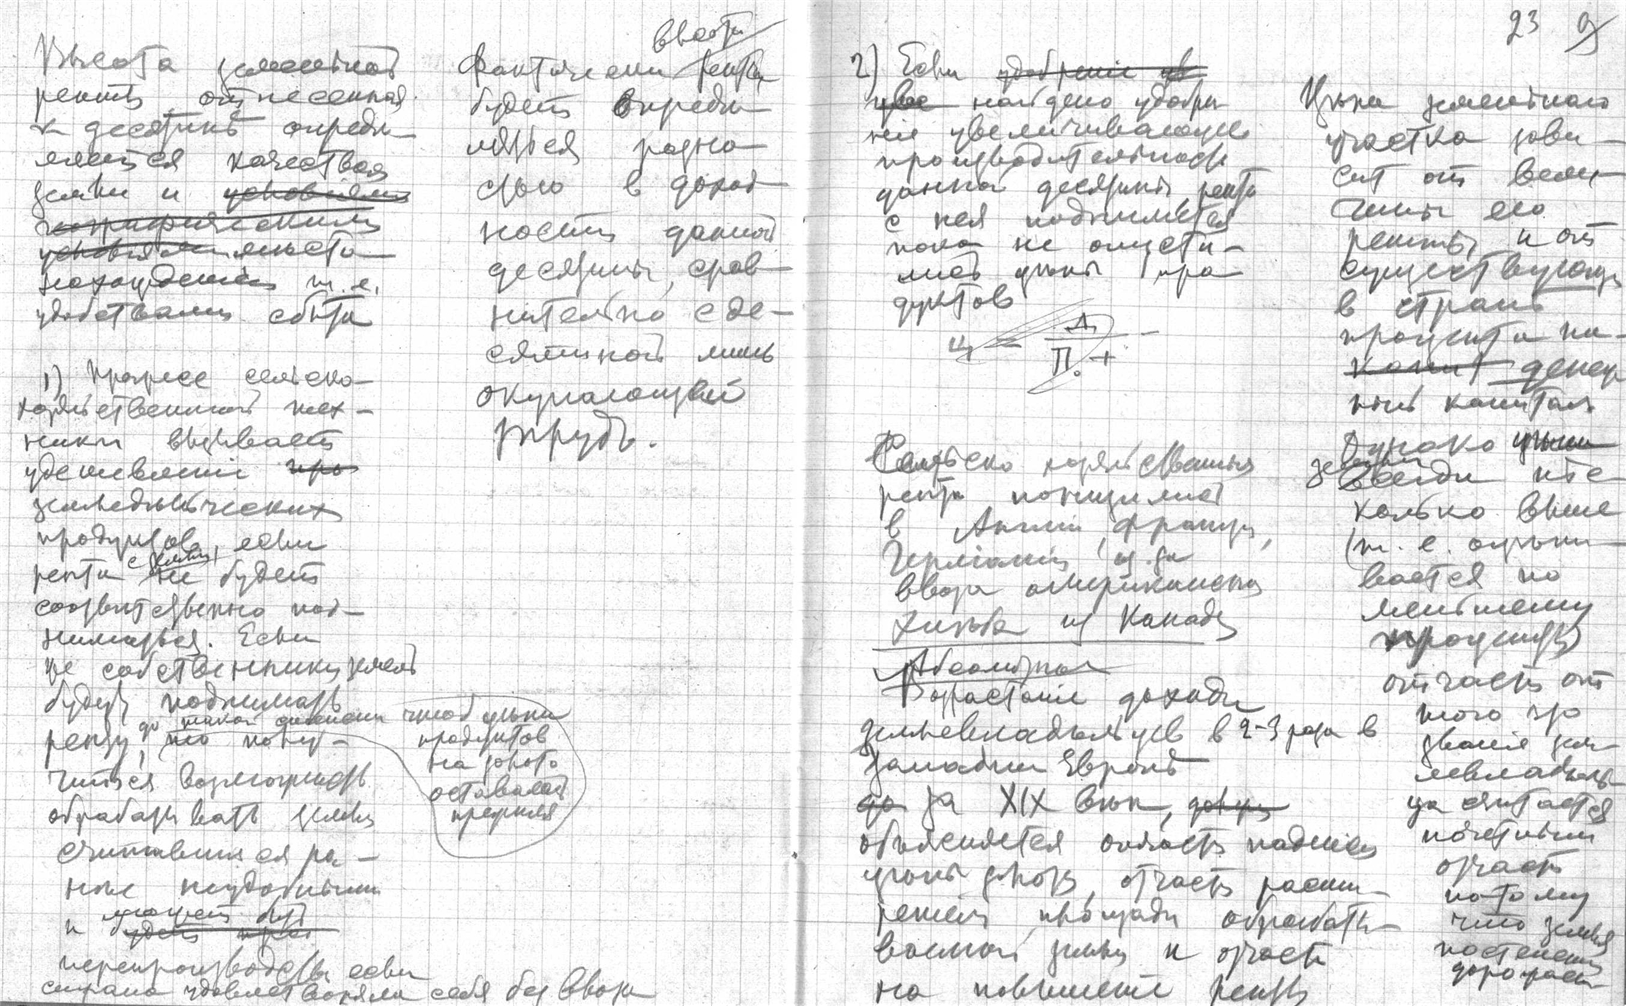 Высота земельной
ренты, отнесенная
к десятинѣ опредѣ-
ляется качествами
земли и условіями
географическими
условіями мѣсто-
нахожденія т. е.
удобствами сбыта
1) Прогресс сельско-
хозяйственной тех-
ники вызывает
удешевленіе про
земледѣльческих
продуктов, если
рента с земли не будет
соответственно под-
ниматься. Если
же собственники земель
будут поднимать
ренту, до такой степени чтоб цѣна
продуктов
на хлѣб
оставалась
прежняя
то полу-
чится возможность
обрабатывать земли
считавшіяся ра-
нѣе неудобными
и может быть
будет
перепроизводство если
страна удовлетворяла себя без ввоза
ввоза
Фактически рента
будет опредѣ-
ляться разно-
стью в доход-
ности данной
десятины, срав-
нительно с де-
сятиной лишь
окупающей
трудъ.
23
2) Если удобреніе
уже найдено удобре-
ніе увеличивающее
производительность
данной десятины рента
с нея поднимется
пока не опусти-
лись цѣны про-
дуктов
Ц = Д / П. +
Сельско хозяйственная
рента понизилась
в Англіи, Франціи,
Германіи из-за
ввоза американского
хлѣба из Канады
Абсолютное
Возрастаніе дохода
землевладѣльцев в 2-3 раза в
Западной Европѣ
за XIX вѣк,
объясняется отчасти паденіем
цѣны денег, отчасти расши-
реніем площади обрабаты-
ваемой земли и отчасти
на повышеніе ренты
Цѣна земельного
участка зави-
сит от вели-
чины его
ренты и от
существующаго
в странѣ
процента на
капит денеж-
ный капитал
Однако цѣна
земли
всегда нѣс-
колько выше
(т. е. оцѣни-
вается по
меньшему
проценту)
отчасти от
того что
званіе зем-
левладѣль-
ца считается
почетным
отчасти
потому
что земля
постепенно
дорожает